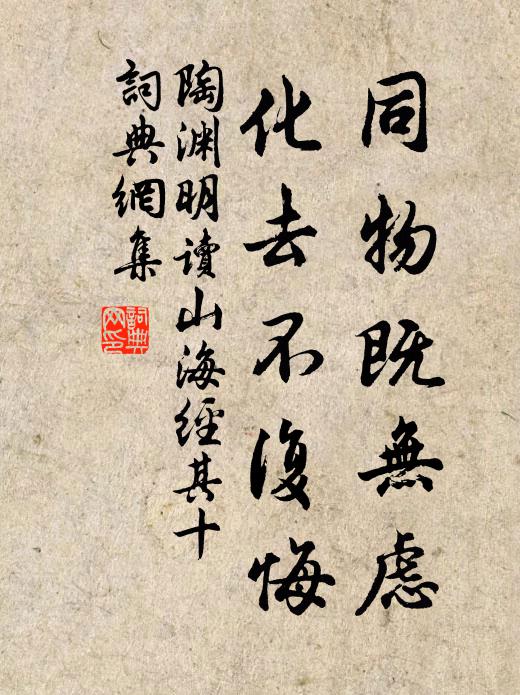 同物既無慮
化去不復悔
陶淵明讀山海經其十
詞典網集
詞典
网印